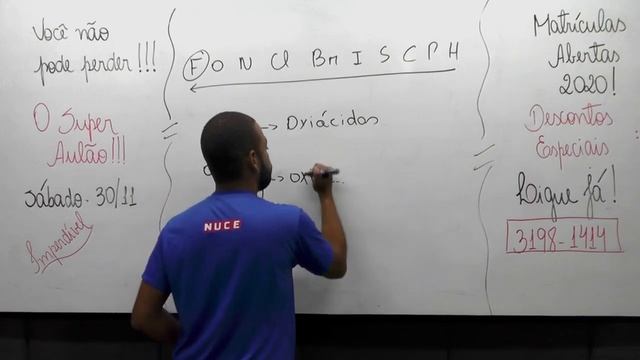 Você não
pode perder!!!
O Super
Aulão!!!
Sábado - 30/11
Imperdível
F O N Cl Br I S C P H
→ Oxiácidos
NUCE
Matrículas
Abertas
2020!
Descontos
Especiais
Ligue já!
3198-1414